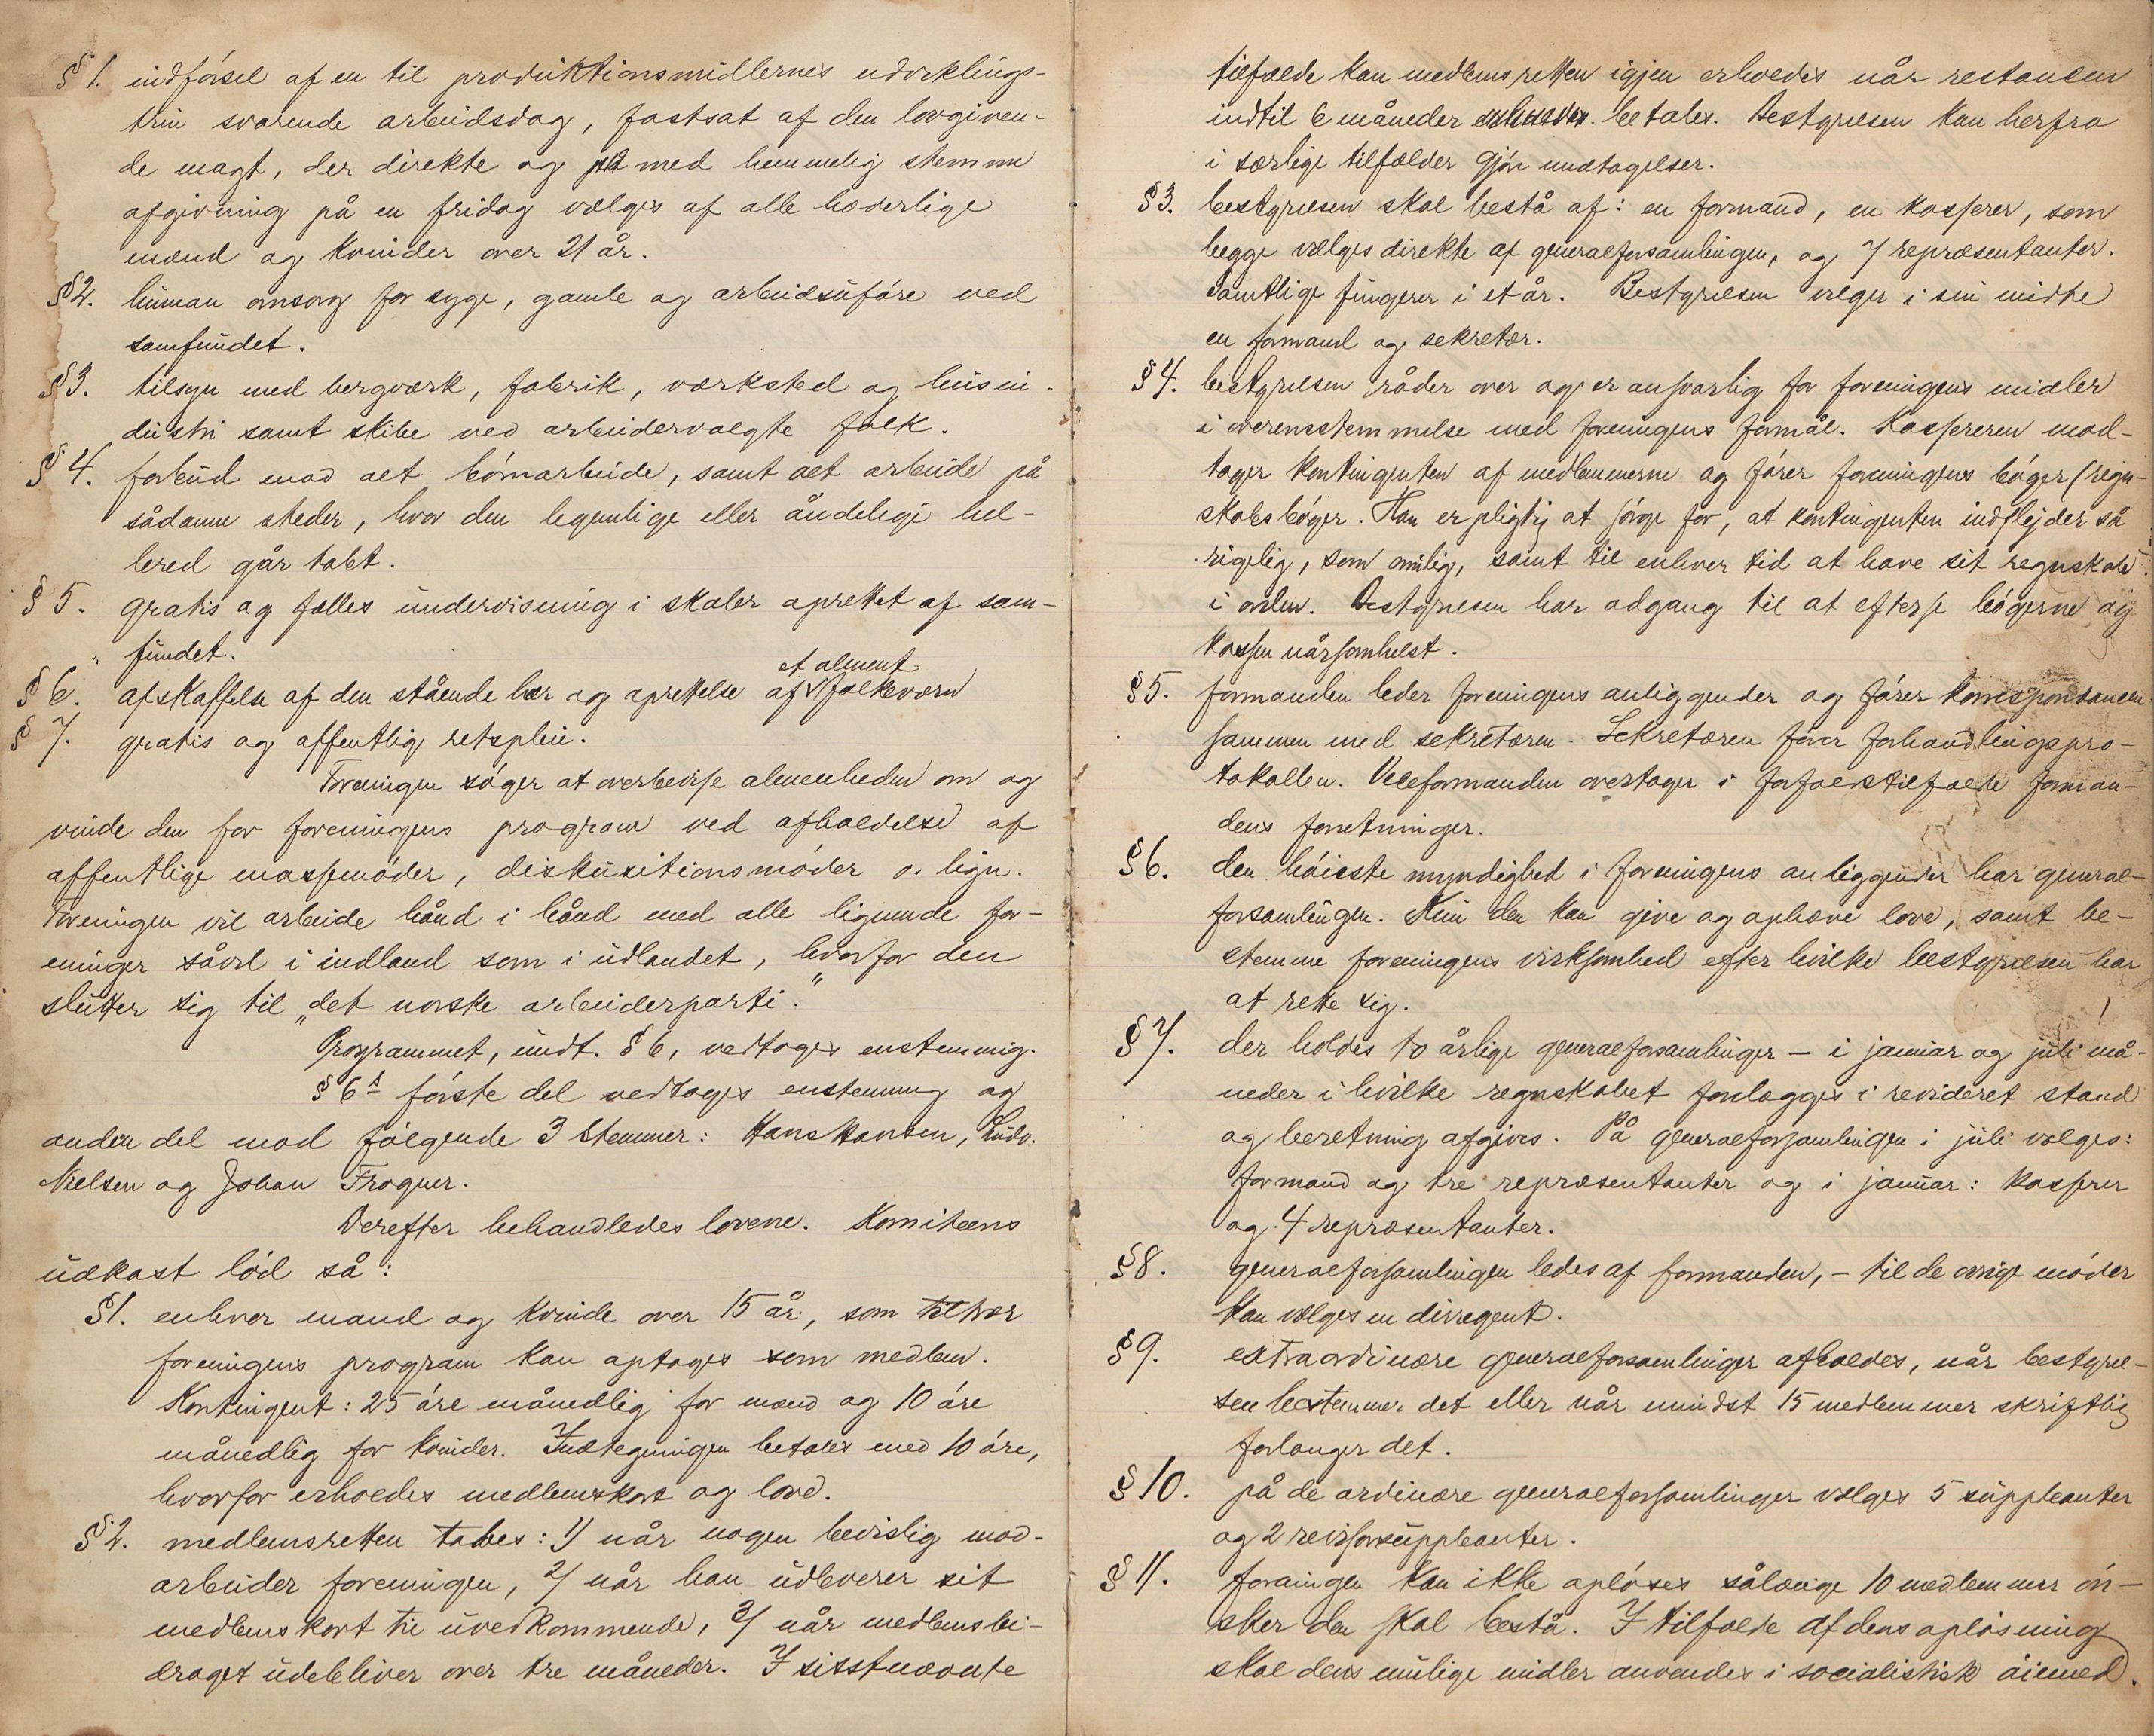 § 1. indførsel af en til produktionsmidlernes udviklings-
trin svarende arbeidsdag, fastsat af den lovgiven-
de magt, der direkte og med hemmelig stemme
afgivning på en fridag vælges af alle hæderlige
mænd og kvinder over 21 år.
§ 2. human omsorg for syge, gamle og arbeidsuføre ved
samfundet.
§ 3. tilsyn med bergværk, fabrik, værksted og husin-
dustri samt skibe ved arbeidervalgte folk.
§ 4. forbud mod alt børnarbeide, samt alt arbeide på
sådanne steder, hvor den legemlige eller åndelige hel-
bred går tabt.
§ 5. gratis og fælles undervisning i skoler oprettet af sam-
fundet.
§ 6. afskaffelse af den stående hær og oprettelse af et alment folkeværn
§ 7. gratis og offentlig retspleie.
Foreningen søger at overbevise almenheden om og
vinde den for foreningens program ved afholdelse af
offentlige massemøder, diskusitionsmøder o. lign.
Foreningen vil arbeide hånd i hånd med alle lignende for-
eninger såvel i indland som i udlandet, hvorfor den
slutter sig til „det norske arbeiderparti."
Programmet, undt. § 6, vedtoges enstemmig.
§ 6s første del vedtoges enstemmig og
anden del mod følgende 3 stemmer: Hans Hansen, Ludv.
Nielsen og Johan Frogner.
Derefter behandledes lovene. Komiteens
udkast lød så:
§ 1. enhver mand og kvinde over 15 år, som
foreningens program kan optages som medlem.
Kontingent: 25 øre månedlig for mænd og 10 øre
månedlig for kvinder. Indtegningen betales med 10 øre,
hvorfor erholdes medlemskort og love.
§ 2. medlemsretten tabes: 1/ når nogen bevislig mod-
arbeider foreningen, 2/ når han udleverer sit
medlemskort til uvedkommende, 3/ når medlemsbi-
draget udebliver over tre måneder. I sisstnævnte
tilfælde kan medlemsretten igjen erholdes når restancen
indtil 6 måneder betales. Bestyrelsen kan herfra
i særlige tilfælder gjøre undtagelser.
§ 3. bestyrelsen skal bestå af: en formand, en kasserer, som
begge vælges direkte af generalforsamlingen, og 7 repræsentanter.
Samtlige fungerer i et år. Bestyrelsen vælger i sin midte
en formand og sekretær.
§ 4. bestyrelsen råder over og er ansvarlig for foreningens midler
i overensstemmelse med foreningens formål. Kassereren mod-
tager kontingenten af medlemmerne og fører foreningens bøger (regn-
skabsbøger. Han er pligtig at sørge for, at kontingenten indflyder så
rigelig, som mulig, samt til enhver tid at have sit regnskab
i orden. Bestyrelsen har adgang til at efterse bøgerne og
kassen nårsomhelst.
§ 5. formanden leder foreningens anliggender og fører korrespondancen
sammen med sekretæren. Sekretæren fører forhandlingspro-
tokollen. Viceformanden overtager i forfaldstilfælde forman-
dens forretninger.
§ 6. den høieste myndighed i foreningens anliggender har general-
forsamlingen. Kun den kan give og ophæve love, samt be-
stemme foreningens virksomhed efter hvilke bestyrelsen har
at rette sig.
§ 7. der holdes to årlige generalforsamlinger – i januar og juli må-
neder i hvilke regnskabet forelægges i revideret stand
og beretning afgives. På generalforsamlingen i juli vælges:
formand og tre repræsentanter og i januar: kasserer
og 4 repræsentanter.
§ 8. generalforsamlingen ledes af formanden, – til de øvrige møder
kan vælges en dirregent.
§ 9. extraordinære generalforsamlinger afholdes, når bestyrel-
sen bestemmer det eller når mindst 15 medlemmer skriftlig
forlanger det.
§ 10. på de ordinære generalforsamlinger vælges 5 suppleanter
og 2 revisorsuppleanter.
§ 11. foreningen kan ikke opløses sålænge 10 medlemmer øn-
sker den skal bestå. I tilfælde af dens opløsning
skal dens mulige midler anvendes i socialistisk øiemed.